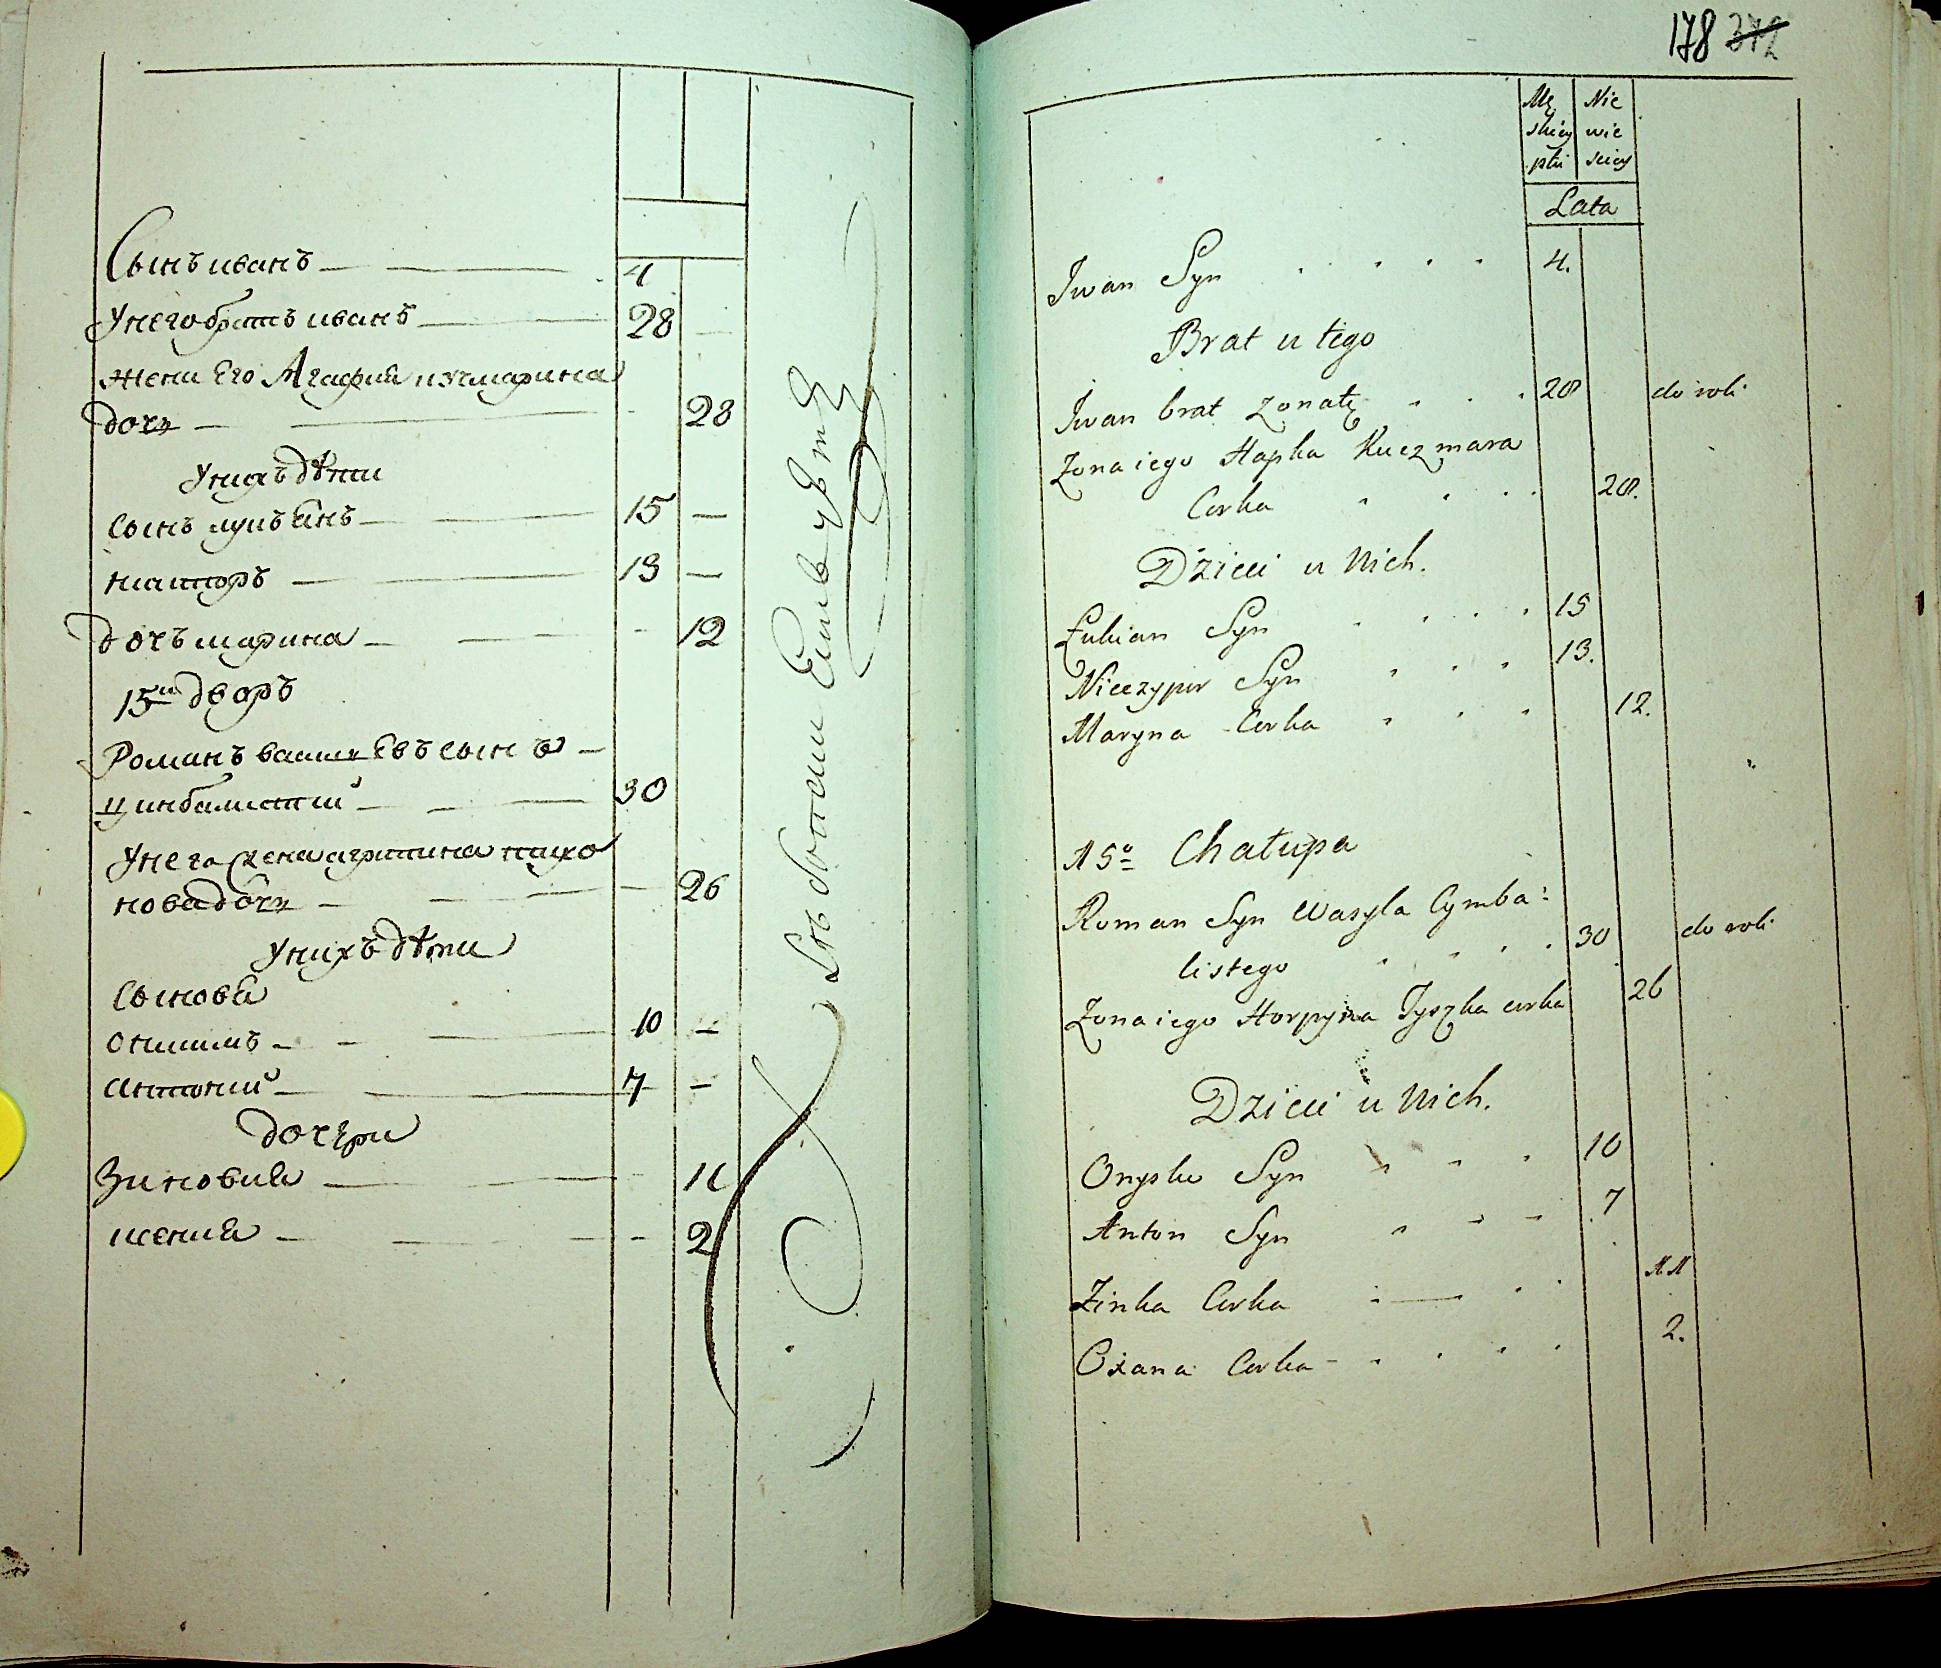 Сынъ иванъ 4
Унего братъ иванъ 28
жена Его Агафия кучмарина
дочь 28
Унихъ дѣти
сынъ лукъянъ 15 —
ничипоръ 13 —
дочь марина 12
15й дворъ
Романъ василь Евъ сынъ
цинбалистий 30
Унего жена агрипина тихо
нова дочь 26
Унихъ дѣти
сынови
онисимъ 10 —
антоний 7 —
дочери
Зиновия 11
ксения 2
178 372
Mę Nie
skiey wie
płci sciey
Lata
Jwan Syn 4.
Brat u tego
Jwan brat żonatę 28 do roli
Żona iego Hapka Kuczmara
Corka 28.
Dzieci u Nich.
Łukian Syn 15
Niczypor Syn 13.
Maryna Corka 12.
15o Chałupa
Roman Syn Wasyla Cymba:
listego 30 do roli
Żona iego Horpyna Tyszka corka 26
Dzieci u Nich.
Onysko Syn 10
Anton Syn 7
Zinka Corka 11
Oxana Corka 2.